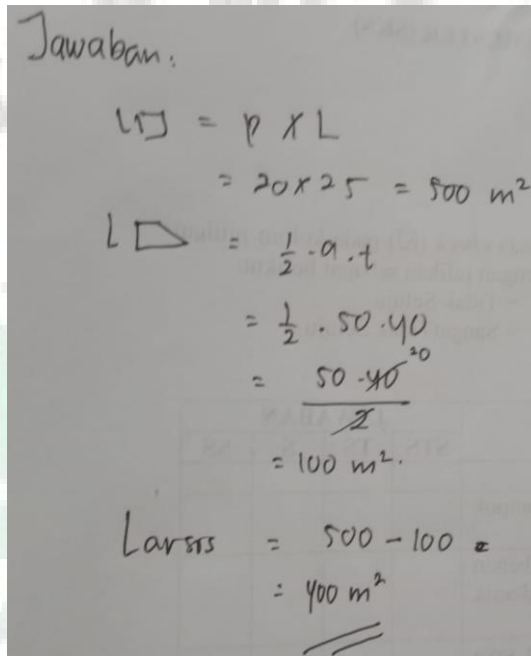 Jawaban:
L▭ = p x L
= 20 x 25 = 500 m²
L = ½ . a . t
= ½ . 50 . 40
= 50 . 40 20
2
= 100 m².
L arsis = 500 - 100 =
= 400 m²